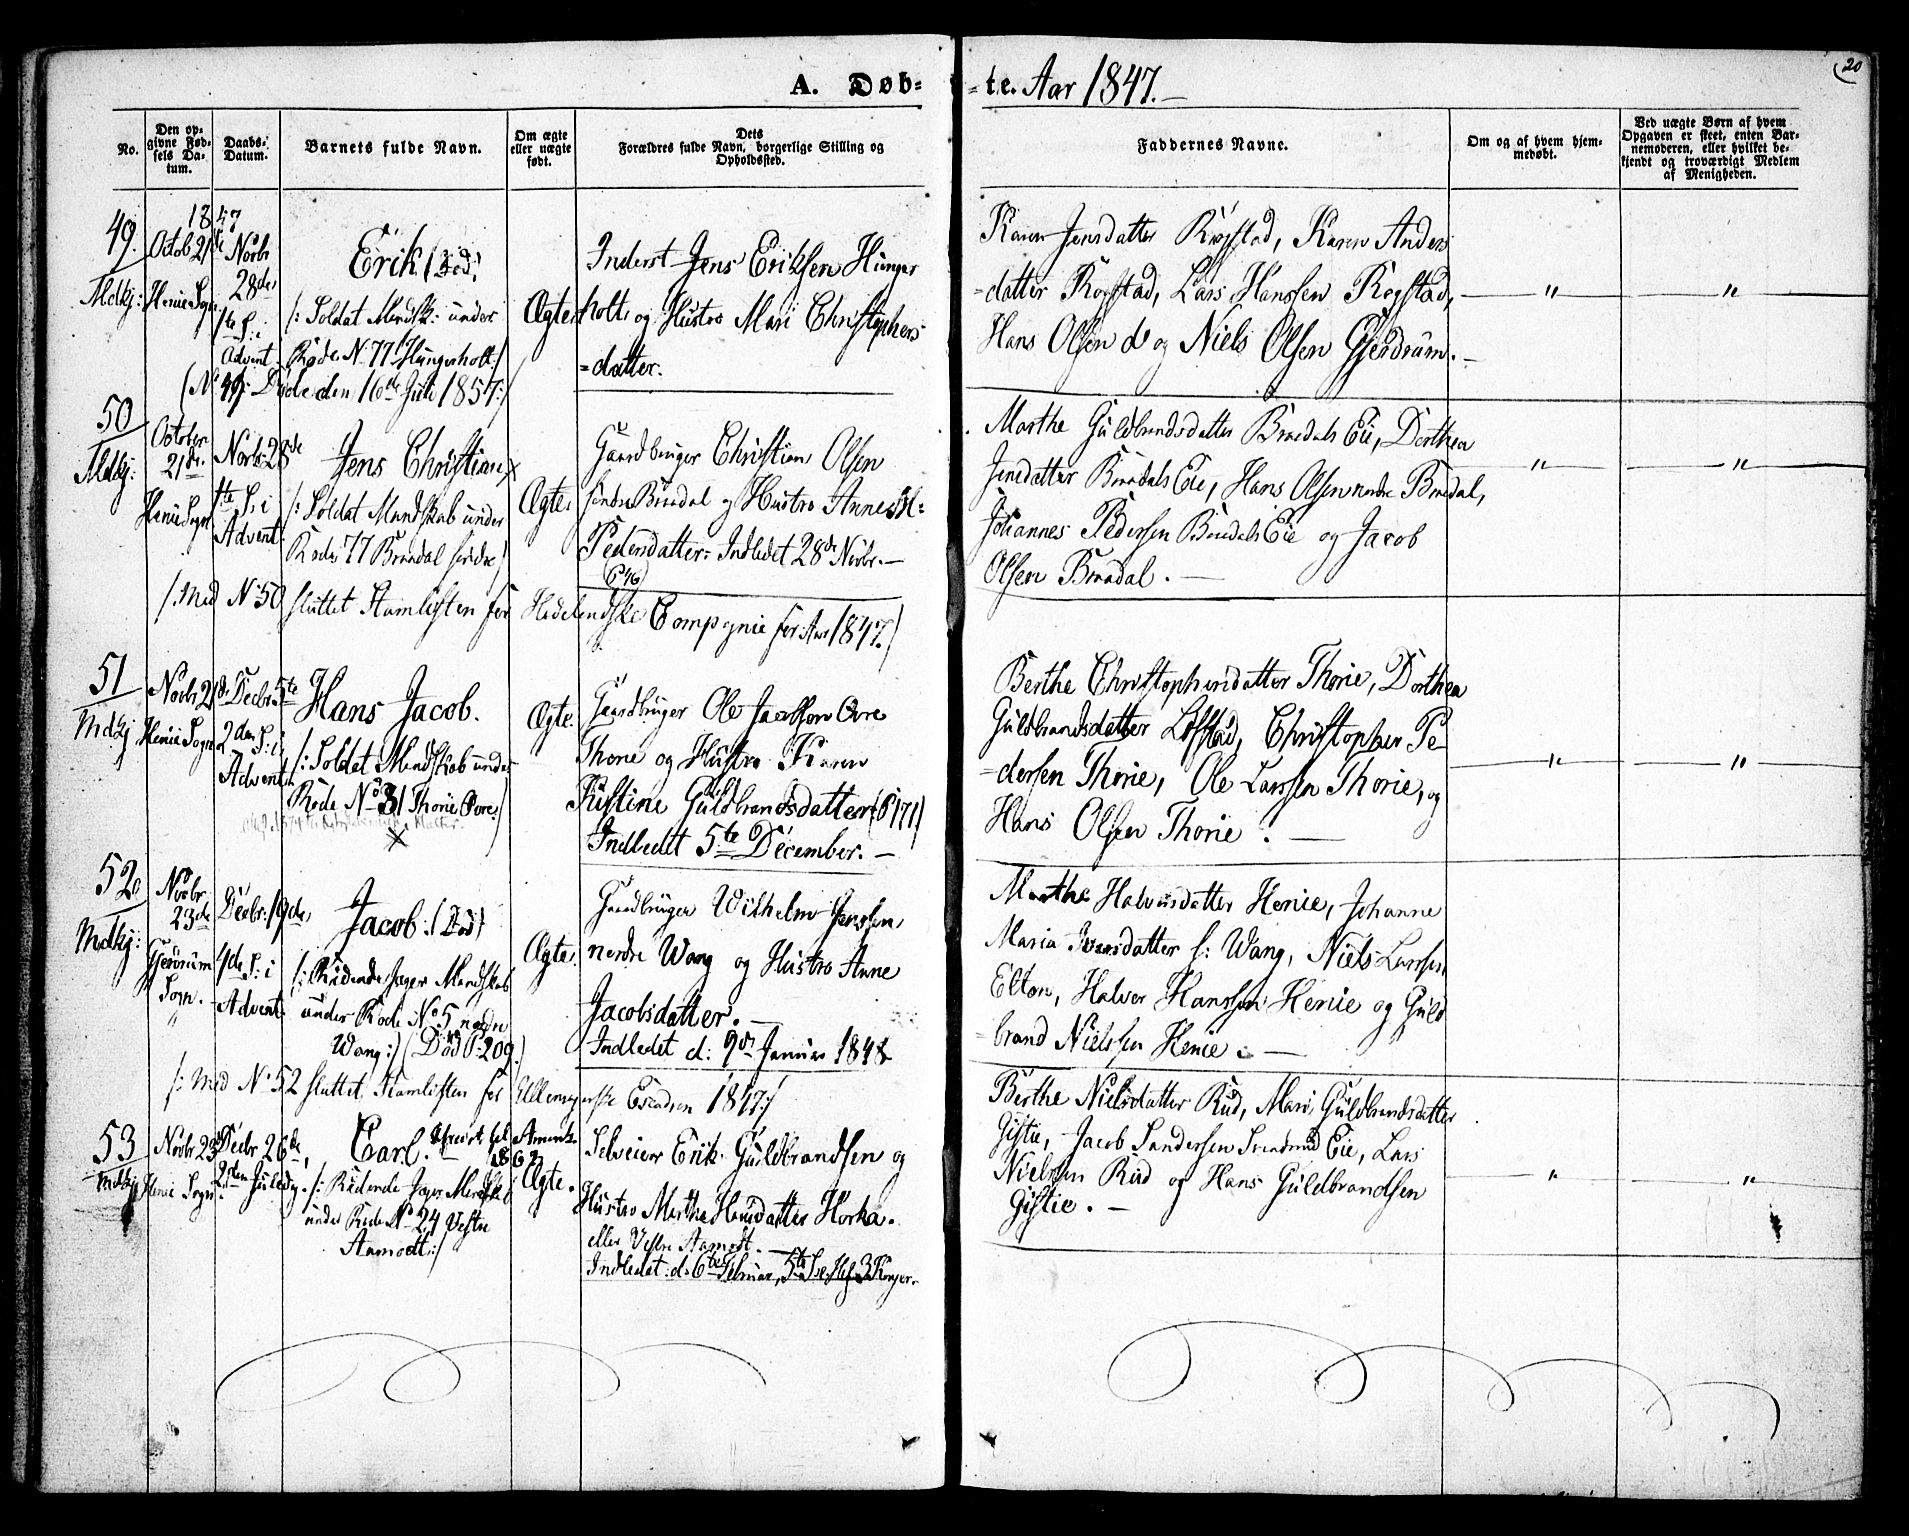 20
A. Døb-
-te. Aar 1847.
No.
Den opgivne Fødsels Datum.
Daabs-Datum.
Barnets fulde Navn.
Om ægte eller uægte født.
Dets
Forældres fulde Navn, borgerlige Stilling og
Opholdssted.
Faddernes Navne.
Om og af hvem hjem-
medøbt.
Ved uægte Børn af hvem
Opgaven er skeet, enten Bar-
nemoderen, eller hvilket be-
kjendt og troværdigt Medlem
af Menigheden.
1847
49.
Mdkj:
Octob 21de
Henie Sogn
Novbr
28de,
1te S: i
Advent
Erik (Død)
/: Soldat Mandsk: under
Rode N: 77 Hungerholt:/
(No 49: Døde den 16de Juli 1857:/
Ægte.
Inderst Jens Eriksen Hunger
holt, og Hustro Mari Christophers-
=datter.
Karen Jensdatter Rogstad, Karen Anders
=datter Rogstad, Lars Hanssen Rogstad,
Hans Olsen do og Niels Olsen Gjerdrum. -
"
"
50
Mdkj:
October
21de.
Henie Sogn
Novbr 28de
1te S: i
Advent
Jens Christian x
/: Soldat Mandskab under
Rode 77 Brødal søndre)
Ægte.
Gaardbruger Christian Olsen
søndre Brødal og Hustro Anne M:
Pedersdatter: Indledet 28de Novbr. -
Marthe Guldbrandsdatter Brødals Eie, Dorthea
Jensdatter Brødals Eie, Hans Olsen nordre Brødal,
Johannes Pedersen Brødals Eie og Jacob
Olsen Brødal. -
"
"
/: Med No 50 sluttet Stamlisten for Hedelendske Compagnie for Aar 1847.)
51
Mdkj
Novbr 21de
Henie Sogn
Decbr. 5te
2den S: i
Advent
Hans Jacob.
/: Soldat Mandskab under
Rode No 31 Thorie Øvre:)
x
Ægte.
Gaardbruger Ole Jacobsen Øvre
Thorie og Hustro Karen
Kistine Guldbrandsdatter (P171)
Indledet 5te December. -
Berthe Christophersdatter Thorie, Dorthea
Guldbrandsdatter Lofstad, Christopher Pe-
=dersen Thorie, Ole Larssen Thorie, og
Hans Olsen Thorie. -
"
"
52
Mdkj:
Novbr
23de
Gjerdrum
Sogn. -
Decbr: 19de,
4de S: i
Advent
Jacob. (Død)
/: Ridende Jæger Mandskab
under Rode No 5 nordre
Wang:) (Død P: 209.)
Ægte.
Gaardbruger Wilhelm Jenssen,
nordre Wang og Hustro Anne
Jacobsdatter. -
Indledet d: 9de Januar 1848
Marthe Halvorsdatter Henie, Johanne
Maria Iversdatter s: Wang, Niels Larssen
Elton, Halvor Hanssen Henie og Guld
=brand Nielssen Henie. -
/: Med No 52 sluttet Stamlisten for Ullensagerske Escadron 1847:/
53
Mdkj
Novbr 23de
Henie Sogn
Decbr 26de,
2den Juledag.
Carl.
/: Ridende Jæger Mandskab
under Rode No 24 Vestre
Aamodt:/
Ægte.
Selveier Erik Guldbrandsen og
Hustro Marthe Hansdatter Horka.
eller Vestre Aamodt. -
Indledet: d: 6te Februar, 5te S. e. Hel. 3 Konger.
Berthe Nielsdatter Rud, Mari Guldbrandsdatter
Gistie, Jacob Sandersen Svendrud Eie, Lars
Nielssen Rud og Hans Guldbrandsen
Gistie. -
"
"